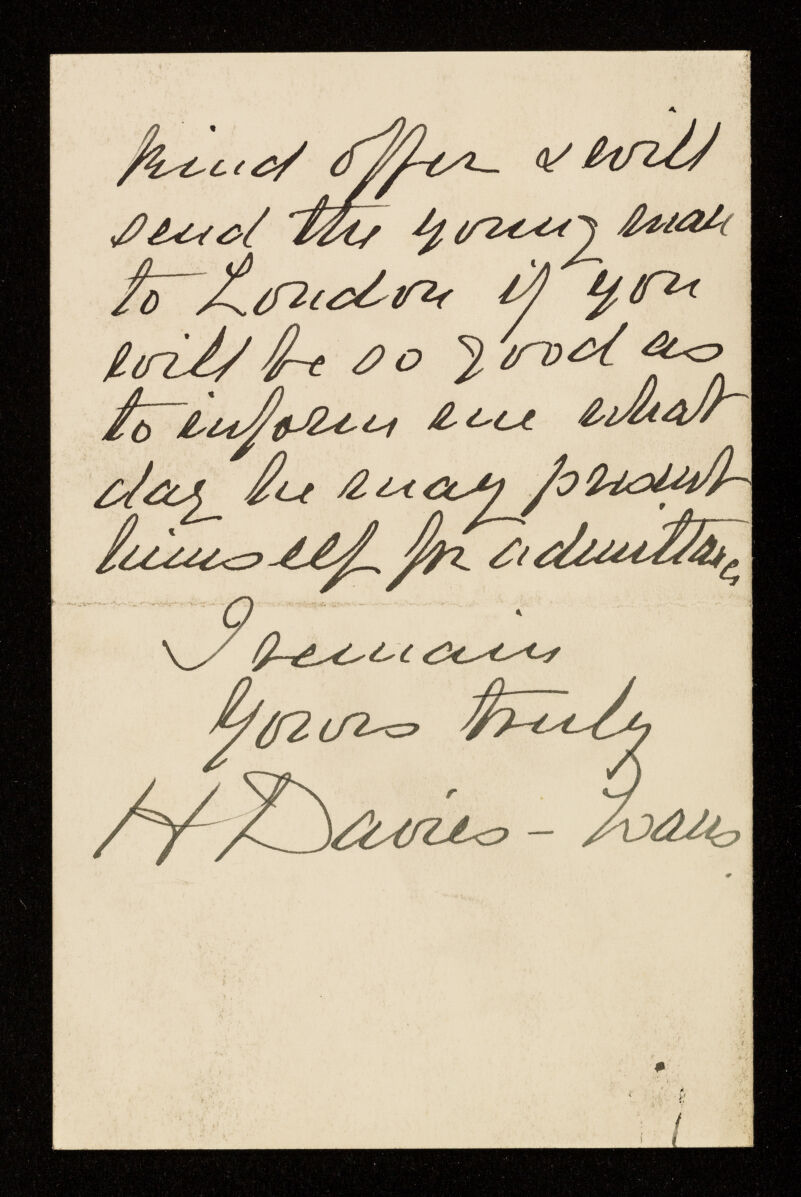 kind offer & will
send the young man
to London if you
will be so good as
to inform me what
day he may present
himself for admittance
I remain
Yours truly
H Davies - Evans